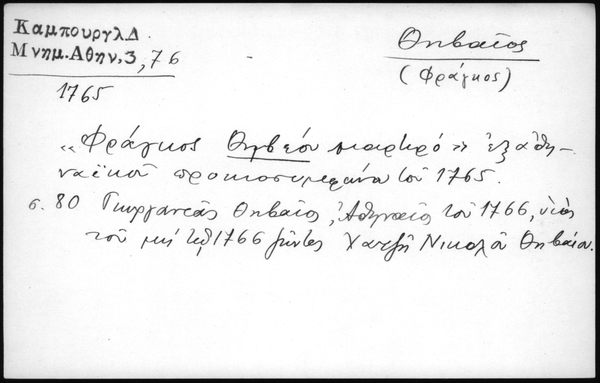 Καμπουργλ.Δ.
Μνημ.Αθην.3, 76
1765
Θηβαῖος
(Φράγκος)
"Φράγκος Θηβεόν μαρτιρό" ἐν ἀθη-
ναϊκοῦ προικοσυμφώνου τοῦ 1765.
σ. 80 Γεωργαντᾶς Θηβαῖος, Ἀθηναῖος τοῦ 1766, υἱός
τοῦ μή 1766 ζῶντος Χατζῆ Νικολάου Θηβαίου.